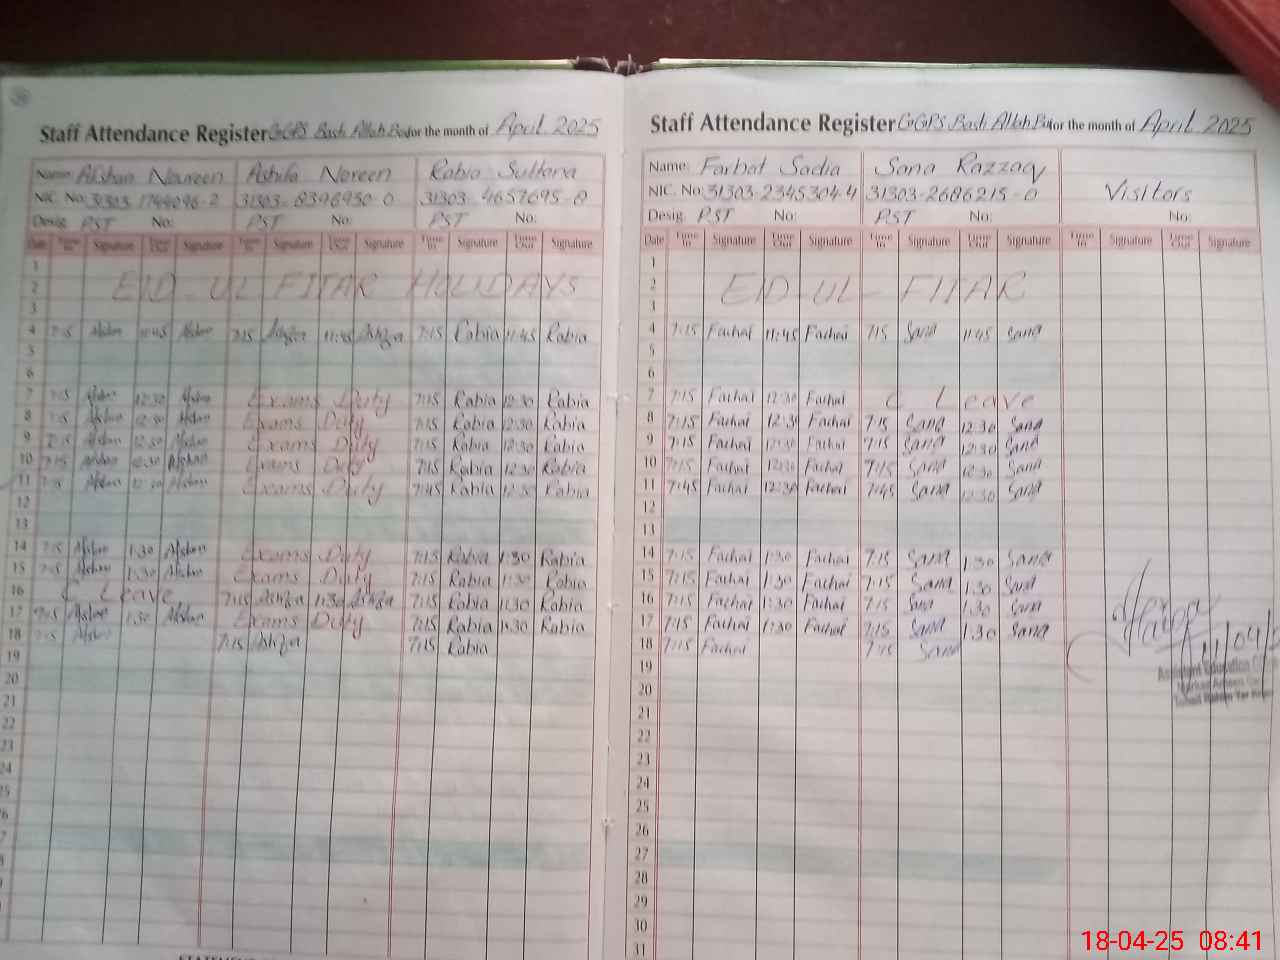 Staff Attendance Register GGPS Basti Allah Bux for the month of April 2025
Name: Afshan Noureen Ashifa Noreen Rabia Sultana
NIC. No: 31303 1744096-2 31303-8396950 0 31303-4657695-8
Desig. PST No: PST No: PST No:
Date Time In Signature Time Out Signature Time In Signature Time Out Signature Time In Signature Time Out Signature
1
2 EID-UL FITAR HOLIDAYS
3
4 7:15 Afshan 11:45 Afshan 7:15 Ashifa 11:45 Ashifa 7:15 Rabia 11:45 Rabia
5
6
7 7:15 Afshan 12:30 Afshan Exams Duty 7:15 Rabia 12:30 Rabia
8 7:15 Afshan 12:30 Afshan Exams Duty 7:15 Rabia 12:30 Rabia
9 7:15 Afshan 12:30 Afshan Exams Duty 7:15 Rabia 12:30 Rabia
10 7:15 Afshan 12:30 Afshan Exams Duty 7:15 Rabia 12:30 Rabia
11 Afshan 12:30 Afshan Exams Duty 7:45 Rabia 12:30 Rabia
12
13
14 7:15 Afshan 1:30 Afshan Exams Duty 7:15 Rabia 1:30 Rabia
15 7:15 Afshan 1:30 Afshan Exams Duty 7:15 Rabia 1:30 Rabia
16 C Leave 7:15 Ashifa 1:30 Ashifa 7:15 Rabia 1:30 Rabia
17 7:15 Afshan 1:30 Afshan Exams Duty 7:15 Rabia 1:30 Rabia
18 7:15 Afshan 7:15 Ashifa 7:15 Rabia
19
20
21
22
23
24
25
Staff Attendance Register GGPS Basti Allah Bux for the month of April 2025
Name: Farhat Sadia Sana Razzaq
NIC. No: 31303-2345304-4 31303-2686215-0 Visitors
Desig. PST No: PST No: No:
Date Time In Signature Time Out Signature Time In Signature Time Out Signature Time In Signature Time Out Signature
1
2 EID-UL-FITAR
3
4 7:15 Farhat 11:45 Farhat 7:15 Sana 11:45 Sana
5
6
7 7:15 Farhat 12:30 Farhat C Leave
8 7:15 Farhat 12:30 Farhat 7:15 Sana 12:30 Sana
9 7:15 Farhat 12:30 Farhat 7:15 Sana 12:30 Sana
10 7:15 Farhat 12:30 Farhat 7:15 Sana 12:30 Sana
11 7:45 Farhat 12:30 Farhat 7:45 Sana 12:30 Sana
12
13
14 7:15 Farhat 1:30 Farhat 7:15 Sana 1:30 Sana
15 7:15 Farhat 1:30 Farhat 7:15 Sana 1:30 Sana
16 7:15 Farhat 1:30 Farhat 7:15 Sana 1:30 Sana
17 7:15 Farhat 1:30 Farhat 7:15 Sana 1:30 Sana
18 7:15 Farhat 7:15 Sana
19
20
21
22
23
24
25
26
27
28
29
30
31
Assistant Education
18-04-25 08:41